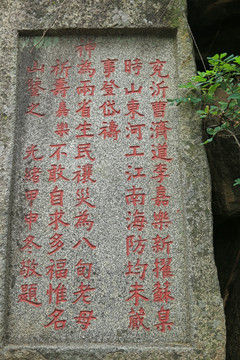 兗沂曹濟道李嘉樂新擢蘇臬
時山東河工江南海防均未蕆
事登岱禱
神為兩省生民禳災為八旬老母
祈壽嘉樂不敢自求多福惟名
山鑒之　光緒甲申冬敬題